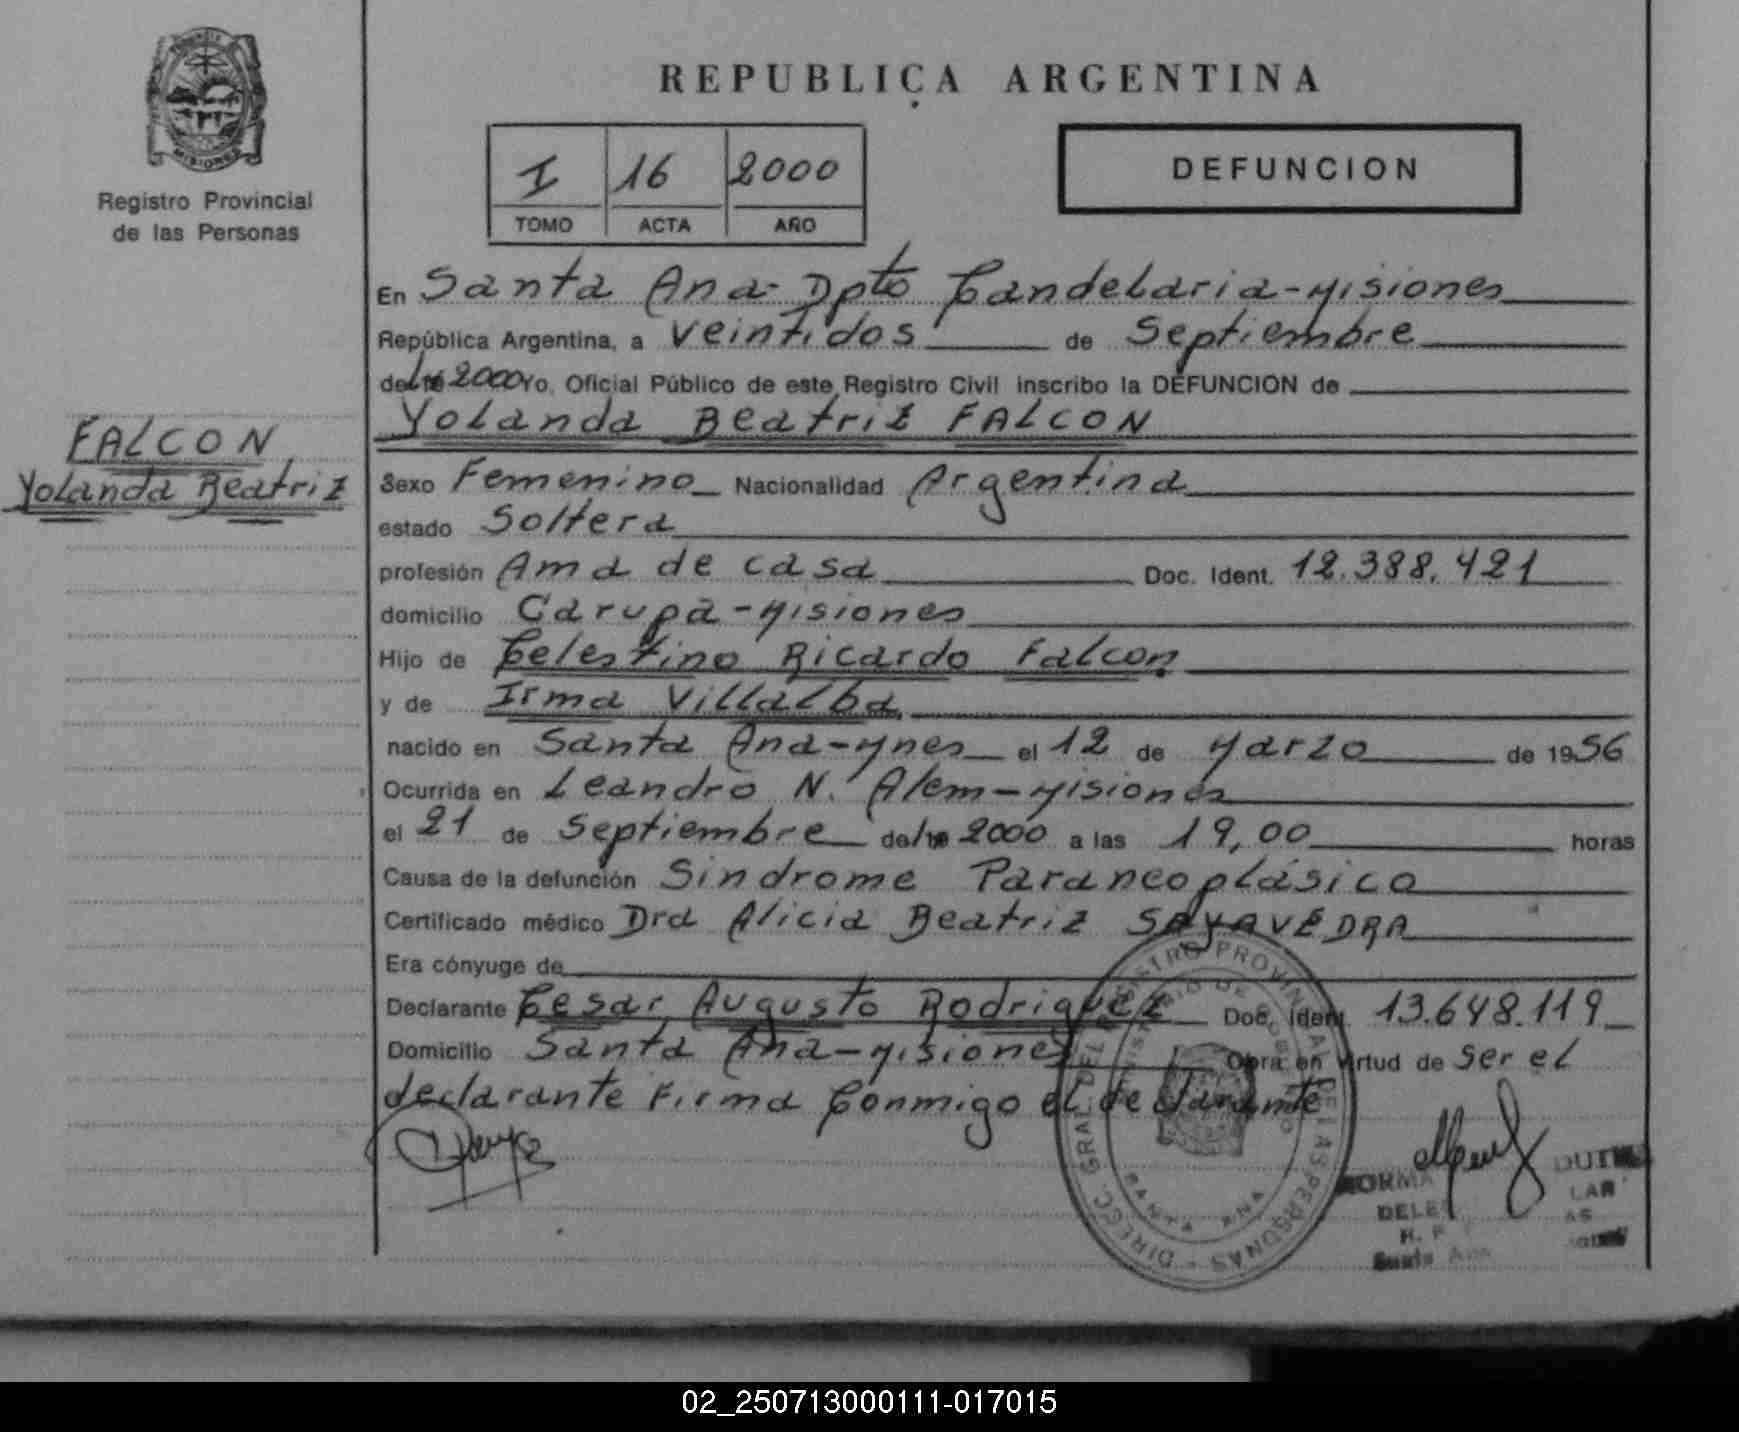 PROVINCIA DE
MISIONES
Registro Provincial
de las Personas
REPUBLICA ARGENTINA
I 16 2000
TOMO ACTA AÑO
DEFUNCION
En Santa Ana-Dpto Candelaria-Misiones
República Argentina, a veintidos de Septiembre
del 2000 Yo, Oficial Público de este Registro Civil inscribo la DEFUNCION de
Yolanda Beatriz FALCON
FALCON
Yolanda Beatriz
Sexo Femenino Nacionalidad Argentina
estado Soltera
profesión Ama de casa Doc. Ident. 12.388.421
domicilio Garupá-Misiones
Hijo de Celestino Ricardo Falcon
y de Irma Villalba
nacido en Santa Ana-Mnes el 12 de Marzo de 1956
Ocurrida en Leandro N. Alem-Misiones
el 21 de Septiembre del 2000 a las 19,00 horas
Causa de la defunción Sindrome Paraneoplásico
Certificado médico Dra Alicia Beatriz SAYAVEDRA
Era cónyuge de
Declarante Cesar Augusto Rodriguez Doc. Ident. 13.648.119
Domicilio Santa Ana-Misiones Obra en virtud de ser el
declarante Firma Conmigo el declarante
DIREC. GRAL. DEL REGISTRO PROVINCIAL DE LAS PERSONAS
MINISTERIO DE GOBIERNO
SANTA ANA
NORMA
Santa Ana
02_250713000111-017015